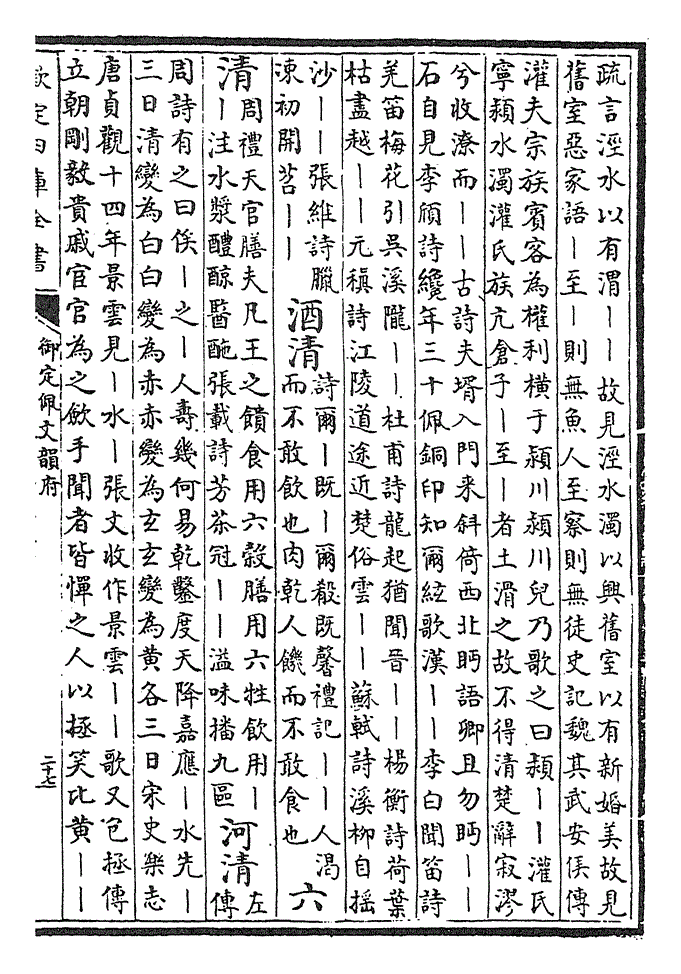 疏言涇水以有渭｜｜故見涇水濁以興舊室以有新婚美故見
舊室惡家語｜至｜則無魚人至察則無徒史記魏其武安侯傳
灌夫宗族賓客為權利橫于潁川潁川兒乃歌之曰潁｜｜灌氏
寧潁水濁灌氏族亢倉子｜至｜者土滑之故不得清楚辭寂漻
兮收潦而｜｜古詩夫壻入門来斜倚西北眄語卿且勿眄｜｜
石自見李頎詩纔年三十佩銅印知爾絃歌漢｜｜李白聞笛詩
羌笛梅花引吳溪隴｜｜杜甫詩龍起猶聞晉｜｜楊衡詩荷葉
枯盡越｜｜元稹詩江陵道途近楚俗雲｜｜蘇軾詩溪柳自摇
沙｜｜張維詩臘
凍初開苕｜｜
酒清
詩爾｜既｜爾殽既馨禮記｜｜人渴
而不敢飲也肉乾人饑而不敢食也
六
清
周禮天官膳夫凡王之饋食用六穀膳用六牲飲用｜
｜注水漿醴䣼醫酏張載詩芳茶冠｜｜溢味播九區
河清
左
傳
周詩有之曰俟｜之｜人壽幾何易乾鑿度天降嘉應｜水先｜
三日清變為白白變為赤赤變為玄玄變為黄各三日宋史樂志
唐貞觀十四年景雲見｜水｜張文收作景雲｜｜歌又包拯傳
立朝剛毅貴戚宦官為之歛手聞者皆憚之人以拯笑比黄｜｜
欽定四庫全書
御定佩文韻府
二十七